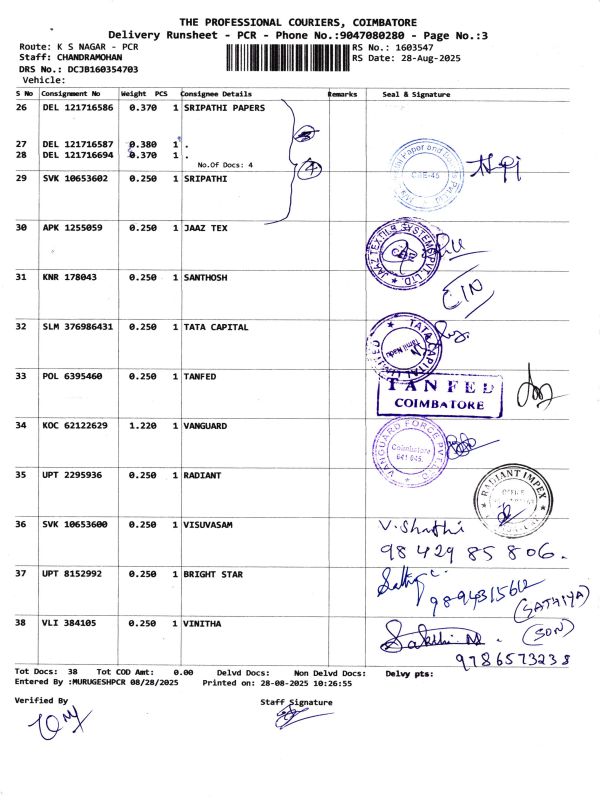 THE PROFESSIONAL COURIERS, COIMBATORE
Delivery Runsheet - PCR - Phone No.:9047080280 - Page No.:3
Route: K S NAGAR - PCR
RS No.: 1603547
Staff: CHANDRAMOHAN
RS Date: 28-Aug-2025
DRS No.: DCJB160354703
Vehicle:
S No Consignment No Weight PCS Consignee Details Remarks Seal & Signature
26 DEL 121716586 0.370 1 SRIPATHI PAPERS
27 DEL 121716587 0.380 1 .
28 DEL 121716694 0.370 1 .
No.Of Docs: 4
4
29 SVK 10653602 0.250 1 SRIPATHI
CBE-45
30 APK 1255059 0.250 1 JAAZ TEX
JAAZ TEXTILE SYSTEMS PVT. LTD.
31 KNR 178043 0.250 1 SANTHOSH
32 SLM 376986431 0.250 1 TATA CAPITAL
TATA CAPITAL LIMITED
Tamil Nadu
33 POL 6395460 0.250 1 TANFED
TANFED
COIMBATORE
34 KOC 62122629 1.220 1 VANGUARD
VANGUARD FORCE PVT LTD
Coimbatore
641 045.
35 UPT 2295936 0.250 1 RADIANT
RADIANT IMPEX
OFFICE
36 SVK 10653600 0.250 1 VISUVASAM
V. Shathi
98429 85806.
37 UPT 8152992 0.250 1 BRIGHT STAR
(SATHIYA)
38 VLI 384105 0.250 1 VINITHA
Sakthi M. (SON)
9786573238
Tot Docs: 38 Tot COD Amt: 0.00 Delvd Docs: Non Delvd Docs: Delvy pts:
Entered By :MURUGESHPCR 08/28/2025 Printed on: 28-08-2025 10:26:55
Verified By
Staff Signature